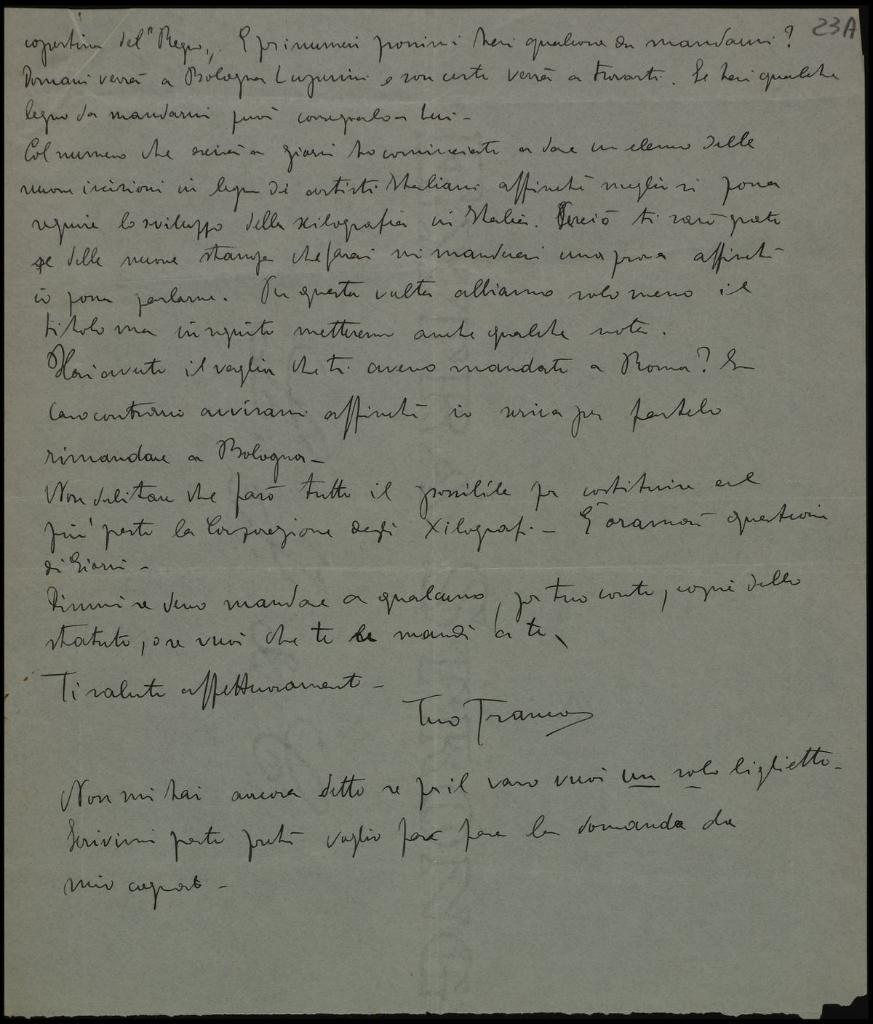 23A
copertina del "Regno". E pei numeri prossimi hai qualcosa da mandarmi?
Domani verrà a Bologna Luperini e son certo verrà a trovarti. Se hai qualche
legno da mandarmi puoi consegnarlo a lui -
Col numero che uscirà a giorni ho cominciato a dare un elenco delle
nuove incisioni in legno di artisti Italiani affinché meglio si possa
seguire lo sviluppo della xilografia in Italia. Perciò ti sarò grato
se delle nuove stampe che farai mi manderai una prova affinché
io possa parlarne. Per questa volta abbiamo solo messo il
titolo ma in seguito metteremo anche qualche nota.
Hai avuto il vaglia che ti avevo mandato a Roma? In
caso contrario avvisami affinché io scriva per fartelo
rimandare a Bologna -
Non dubitare che farò tutto il possibile per costituire al
più presto la Corporazione degli Xilografi - È oramai questione
di giorni -
Dimmi se devo mandare a qualcuno, per tuo conto, copie dello
statuto, o se vuoi che te le mandi a te,
Ti saluto affettuosamente -
Tuo Franco
Non mi hai ancora detto se per il vaso vuoi un solo biglietto -
Scrivimi presto perché voglio fare la domanda da
mio